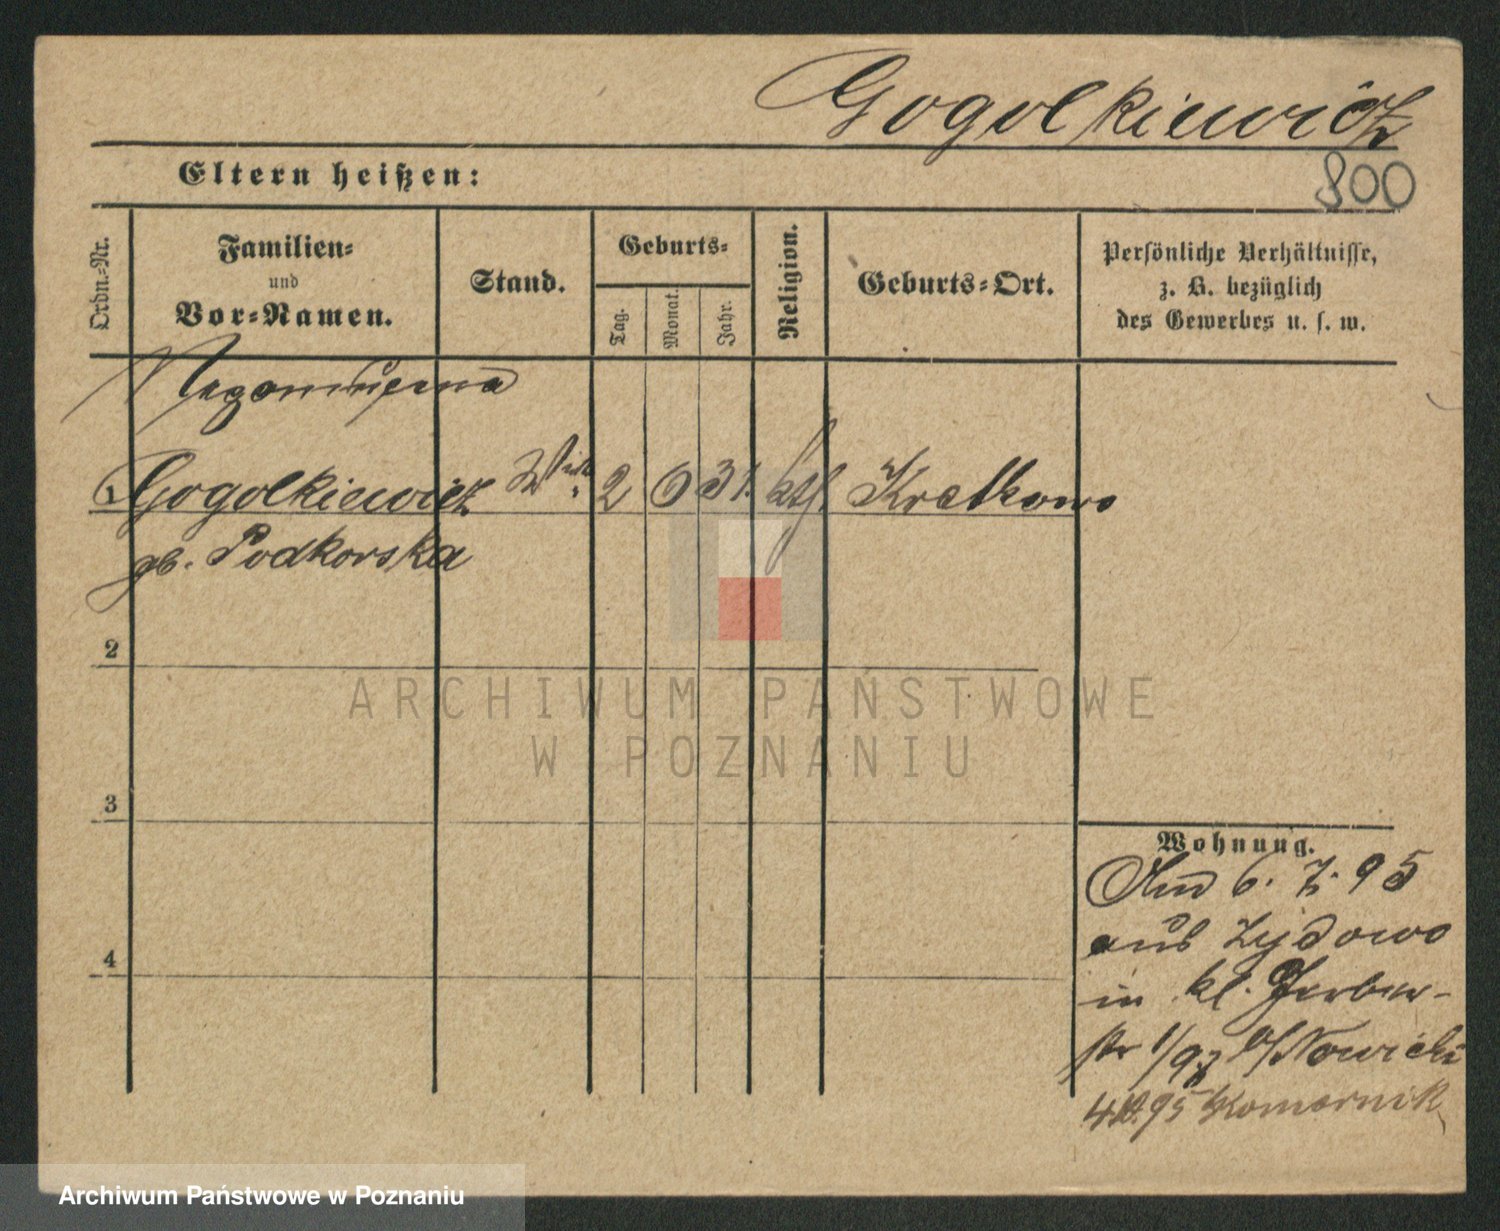 Gogolkiewicz
800
Eltern heißen:
Ordn.-Nr.
Familien-
und
Vor-Namen.
Stand.
Geburts-
Tag.
Monat.
Jahr.
Religion.
Geburts-Ort.
Persönliche Verhältnisse,
z. B. bezüglich
des Gewerbes u. s. w.
1 Gogolkiewicz Wit. 2 6 31. kth.
gb. Podkorska
2
3
4
Wohnung.
6. 7. 95
aus Zydowo
in kl. Gerber-
str 1/9 b/Nowicki
4.10.95 Komornik
ARCHIWUM PAŃSTWOWE
W POZNANIU
Archiwum Państwowe w Poznaniu